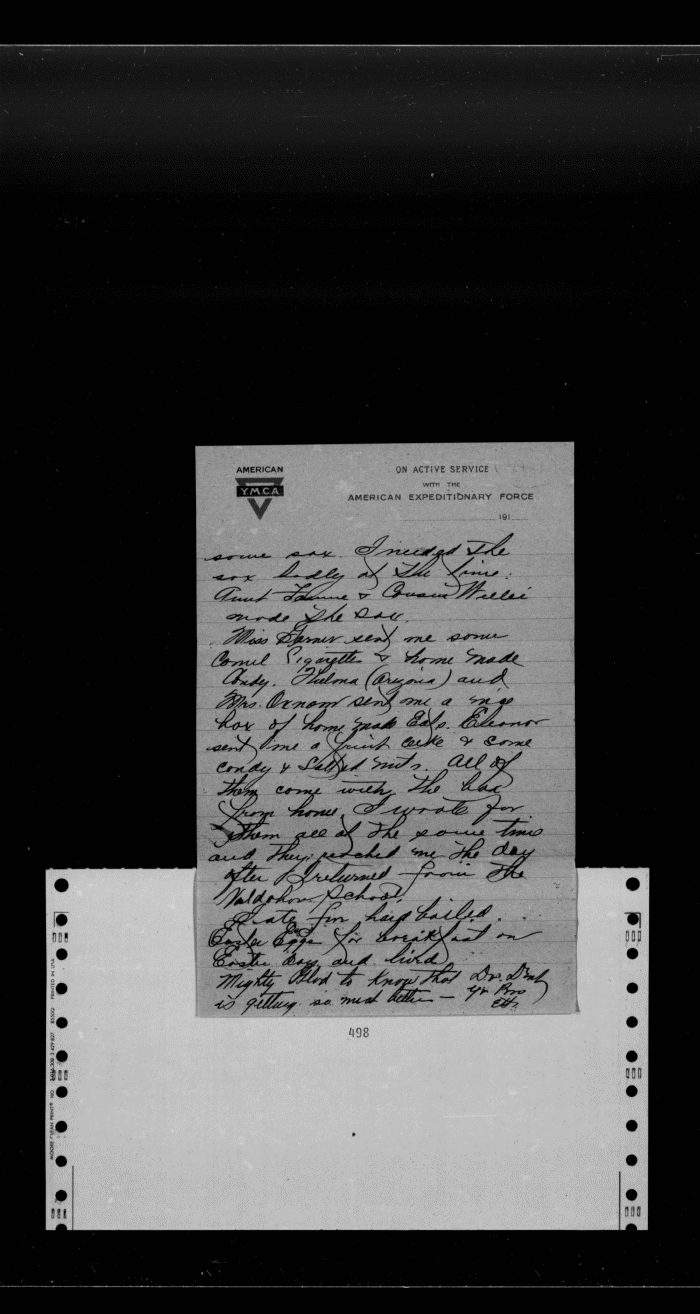 AMERICAN
Y.M.C.A
ON ACTIVE SERVICE
WITH THE
AMERICAN EXPEDITIONARY FORCE
191
some sox. I needed the
sox badly at the time.
Aunt Fannie & Cousin Willie
made the sox.
Miss Garner sent me some
Camel Cigarettes & home made
Candy. Thelma (Arizona) and
Mrs. Oxnam sent me a nice
box of home made Eats. Eleanor
sent me a fruit cake & some
candy & Salted nuts. All of
them come with the box
from home. I wrote for
them all at the same time
and they reached me the day
after I returned from the
Valdahon School.
I ate five hard boiled
Easter Eggs for breakfast on
Easter day and lived
Mighty Glad to know that Dr. Dent
is getting so much better —
Yr Bro
498
MOORE CLEAN PRINT
PRINTED IN USA